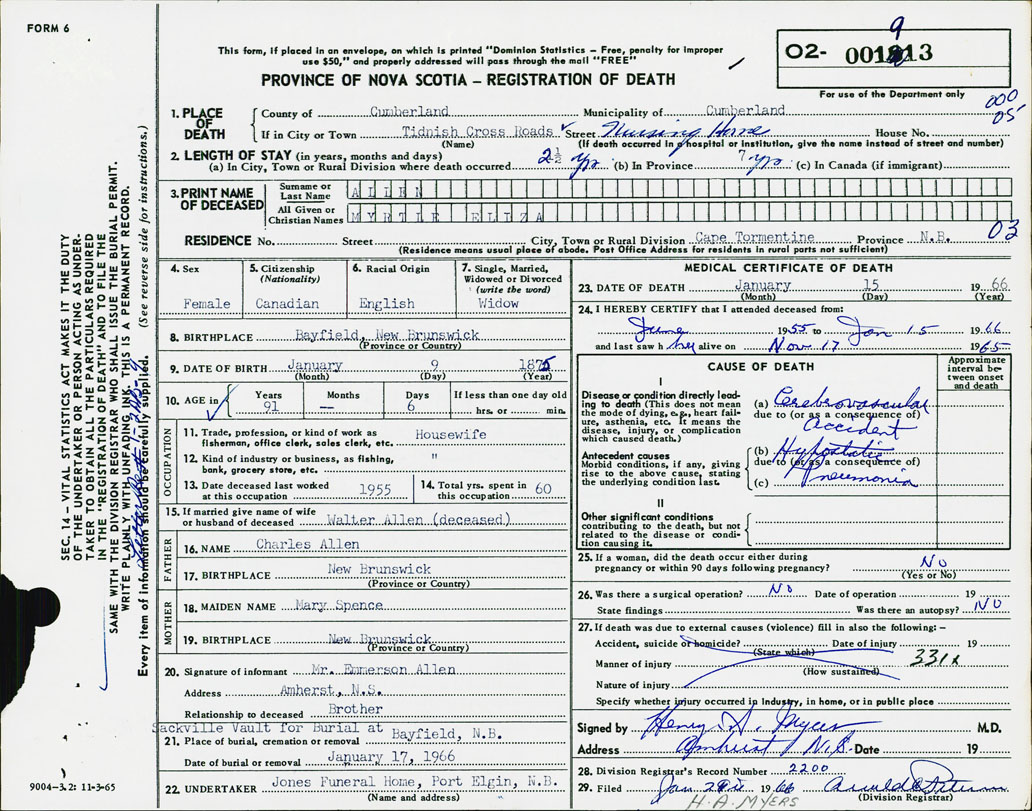 FORM 6
This form, if placed in an envelope, on which is printed "Dominion Statistics – Free, penalty for improper
use $50," and properly addressed will pass through the mail "FREE"
PROVINCE OF NOVA SCOTIA – REGISTRATION OF DEATH
02- 001913
For use of the Department only
000
05
1. PLACE OF DEATH
County of Cumberland Municipality of Cumberland
If in City or Town Tidnish Cross Roads Street Nursing Home House No.
(Name) (If death occurred in a hospital or institution, give the name instead of street and number)
2. LENGTH OF STAY (in years, months and days)
(a) In City, Town or Rural Division where death occurred 2½ yrs (b) In Province 7 yrs (c) In Canada (if immigrant)
3. PRINT NAME OF DECEASED
Surname or Last Name ALLEN
All Given or Christian Names MYRTLE ELIZA
RESIDENCE No. Street City, Town or Rural Division Cape Tormentine Province N.B. 03
(Residence means usual place of abode. Post Office Address for residents in rural parts not sufficient)
4. Sex
Female
5. Citizenship
(Nationality)
Canadian
6. Racial Origin
English
7. Single, Married,
Widowed or Divorced
(write the word)
Widow
8. BIRTHPLACE Bayfield, New Brunswick
(Province or Country)
9. DATE OF BIRTH January 9 1875
(Month) (Day) (Year)
10. AGE in
Years Months Days If less than one day old
91 -- 6 hrs. or min.
OCCUPATION
11. Trade, profession, or kind of work as
fisherman, office clerk, sales clerk, etc. Housewife
12. Kind of industry or business, as fishing,
bank, grocery store, etc. "
13. Date deceased last worked
at this occupation 1955
14. Total yrs. spent in
this occupation 60
15. If married give name of wife
or husband of deceased Walter Allen (deceased)
FATHER
16. NAME Charles Allen
17. BIRTHPLACE New Brunswick
(Province or Country)
MOTHER
18. MAIDEN NAME Mary Spence
19. BIRTHPLACE New Brunswick
(Province or Country)
20. Signature of informant Mr. Emmerson Allen
Address Amherst, N.S.
Relationship to deceased Brother
Sackville Vault for Burial at
21. Place of burial, cremation or removal Bayfield, N.B.
Date of burial or removal January 17, 1966
22. UNDERTAKER Jones Funeral Home, Port Elgin, N.B.
(Name and address)
MEDICAL CERTIFICATE OF DEATH
23. DATE OF DEATH January 15 1966
(Month) (Day) (Year)
24. I HEREBY CERTIFY that I attended deceased from:
June 1955 to Jan 15 1966
and last saw her alive on Nov 17 1965
CAUSE OF DEATH
Approximate
interval be-
tween onset
and death
I
Disease or condition directly lead-
ing to death (This does not mean
the mode of dying, e.g., heart fail-
ure, asthenia, etc. It means the
disease, injury, or complication
which caused death.)
(a) Cerebrovascular
due to (or as a consequence of)
accident
Antecedent causes
Morbid conditions, if any, giving
rise to the above cause, stating
the underlying condition last.
(b) Hypostatic
due to (or as a consequence of)
(c) Pneumonia
II
Other significant conditions
contributing to the death, but not
related to the disease or condi-
tion causing it.
25. If a woman, did the death occur either during
pregnancy or within 90 days following pregnancy? No
(Yes or No)
26. Was there a surgical operation? No Date of operation 19
State findings Was there an autopsy? NO
27. If death was due to external causes (violence) fill in also the following: –
Accident, suicide or homicide? Date of injury 19
(State which)
Manner of injury 331x
(How sustained)
Nature of injury
Specify whether injury occurred in industry, in home, or in public place
Signed by Henry A. Myers M.D.
Address Amherst N.S. Date 19
28. Division Registrar's Record Number 2200
29. Filed Jan 1966
(Division Registrar)
H.A. MYERS
SEC. 14 – VITAL STATISTICS ACT MAKES IT THE DUTY
OF THE UNDERTAKER OR PERSON ACTING AS UNDER-
TAKER TO OBTAIN ALL THE PARTICULARS REQUIRED
IN THE "REGISTRATION OF DEATH" AND TO FILE THE
SAME WITH THE DIVISION REGISTRAR WHO SHALL ISSUE THE BURIAL PERMIT.
WRITE PLAINLY WITH UNFADING INK. THIS IS A PERMANENT RECORD.
Every item of information should be carefully supplied. (See reverse side for instructions.)
9004-3.2: 11-3-65